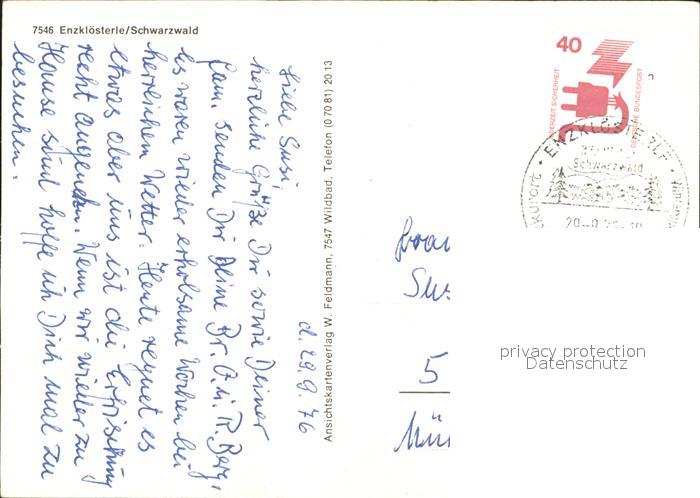 7546 Enzklösterle/Schwarzwald
d. 29.9.76
Liebe Susi,
herzliche Grüße Dir sowie Deiner
Fam. senden Dir Deine Br. O. u. R. Berg,
es waren wieder erholsame Wochen bei
herrlichem Wetter. Heute regnet es
etwas aber uns ist die Erfrischung
recht angenehm. Wenn wir wieder zu
Hause sind hoffe ich Dich mal zu
besuchen.
Ansichtskartenverlag W. Feldmann, 7547 Wildbad, Telefon (0 70 81) 20 13
40
JEDERZEIT SICHERHEIT
DEUTSCHE BUNDESPOST
ENZKLÖSTERLE
Schwarzwald
Frau
Sus
5
Mün
privacy protection
Datenschutz